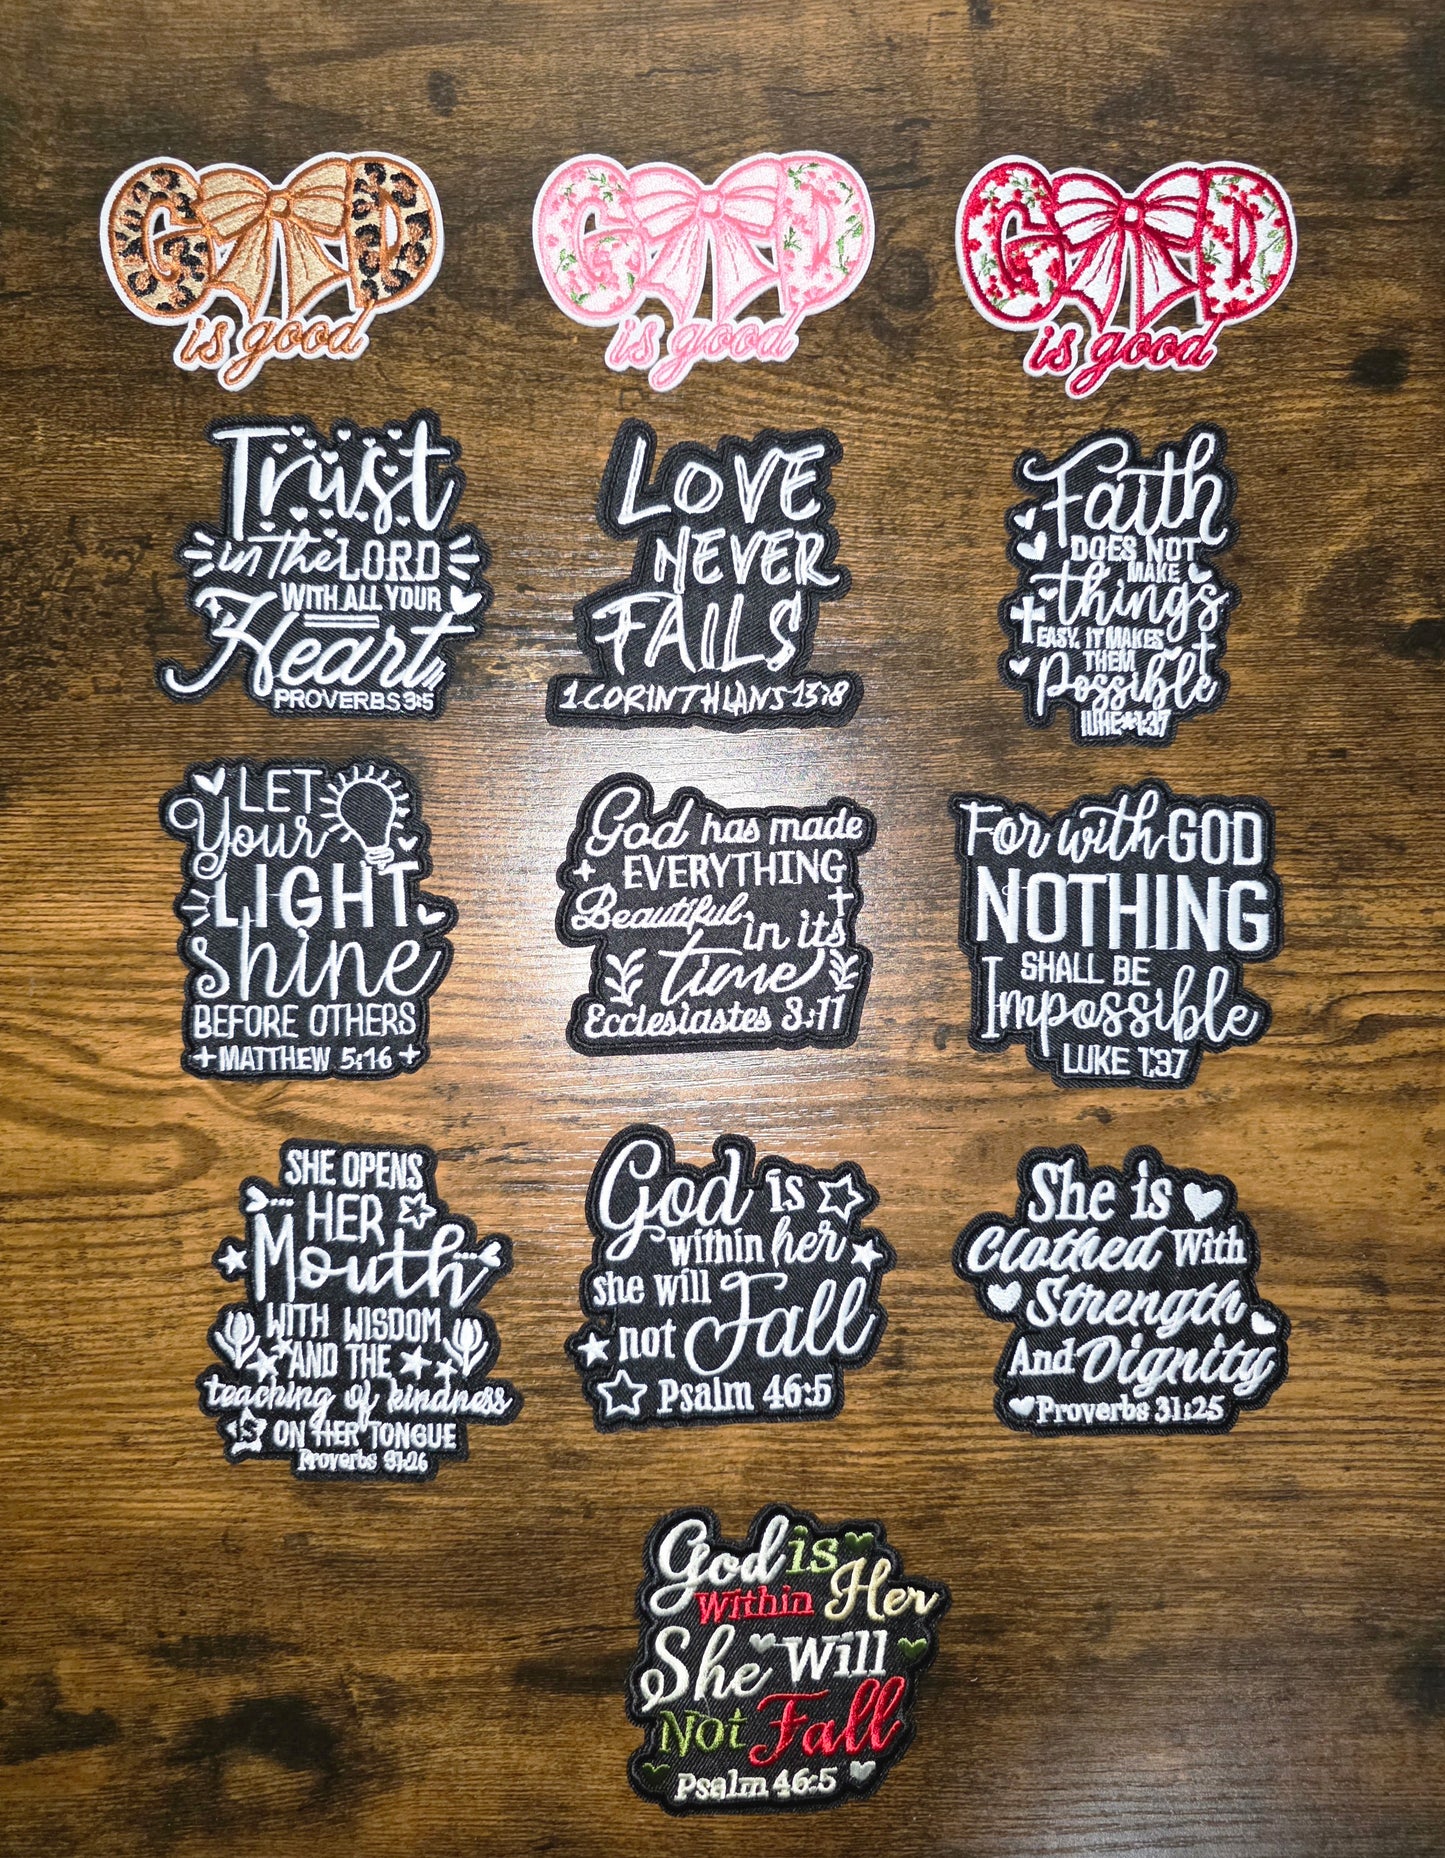 GOD
is good
GOD
is good
GOD
is good
Trust
in the LORD
WITH ALL YOUR
Heart
PROVERBS 3:5
LOVE
NEVER
FAILS
1 CORINTHIANS 13:8
Faith
DOES NOT
MAKE
things
EASY, IT MAKES
THEM
Possible
1:37
LET
Your
LIGHT
shine
BEFORE OTHERS
MATTHEW 5:16
God has made
EVERYTHING
Beautiful,
in its
time
Ecclesiastes 3:11
For with GOD
NOTHING
SHALL BE
Impossible
LUKE 1:37
SHE OPENS
HER
Mouth
WITH WISDOM
AND THE
teaching of kindness
IS ON HER TONGUE
Proverbs 31:26
God is
within her
she will
not Fall
Psalm 46:5
She is
Clothed With
Strength
And Dignity
Proverbs 31:25
God is
Within Her
She Will
Not Fall
Psalm 46:5